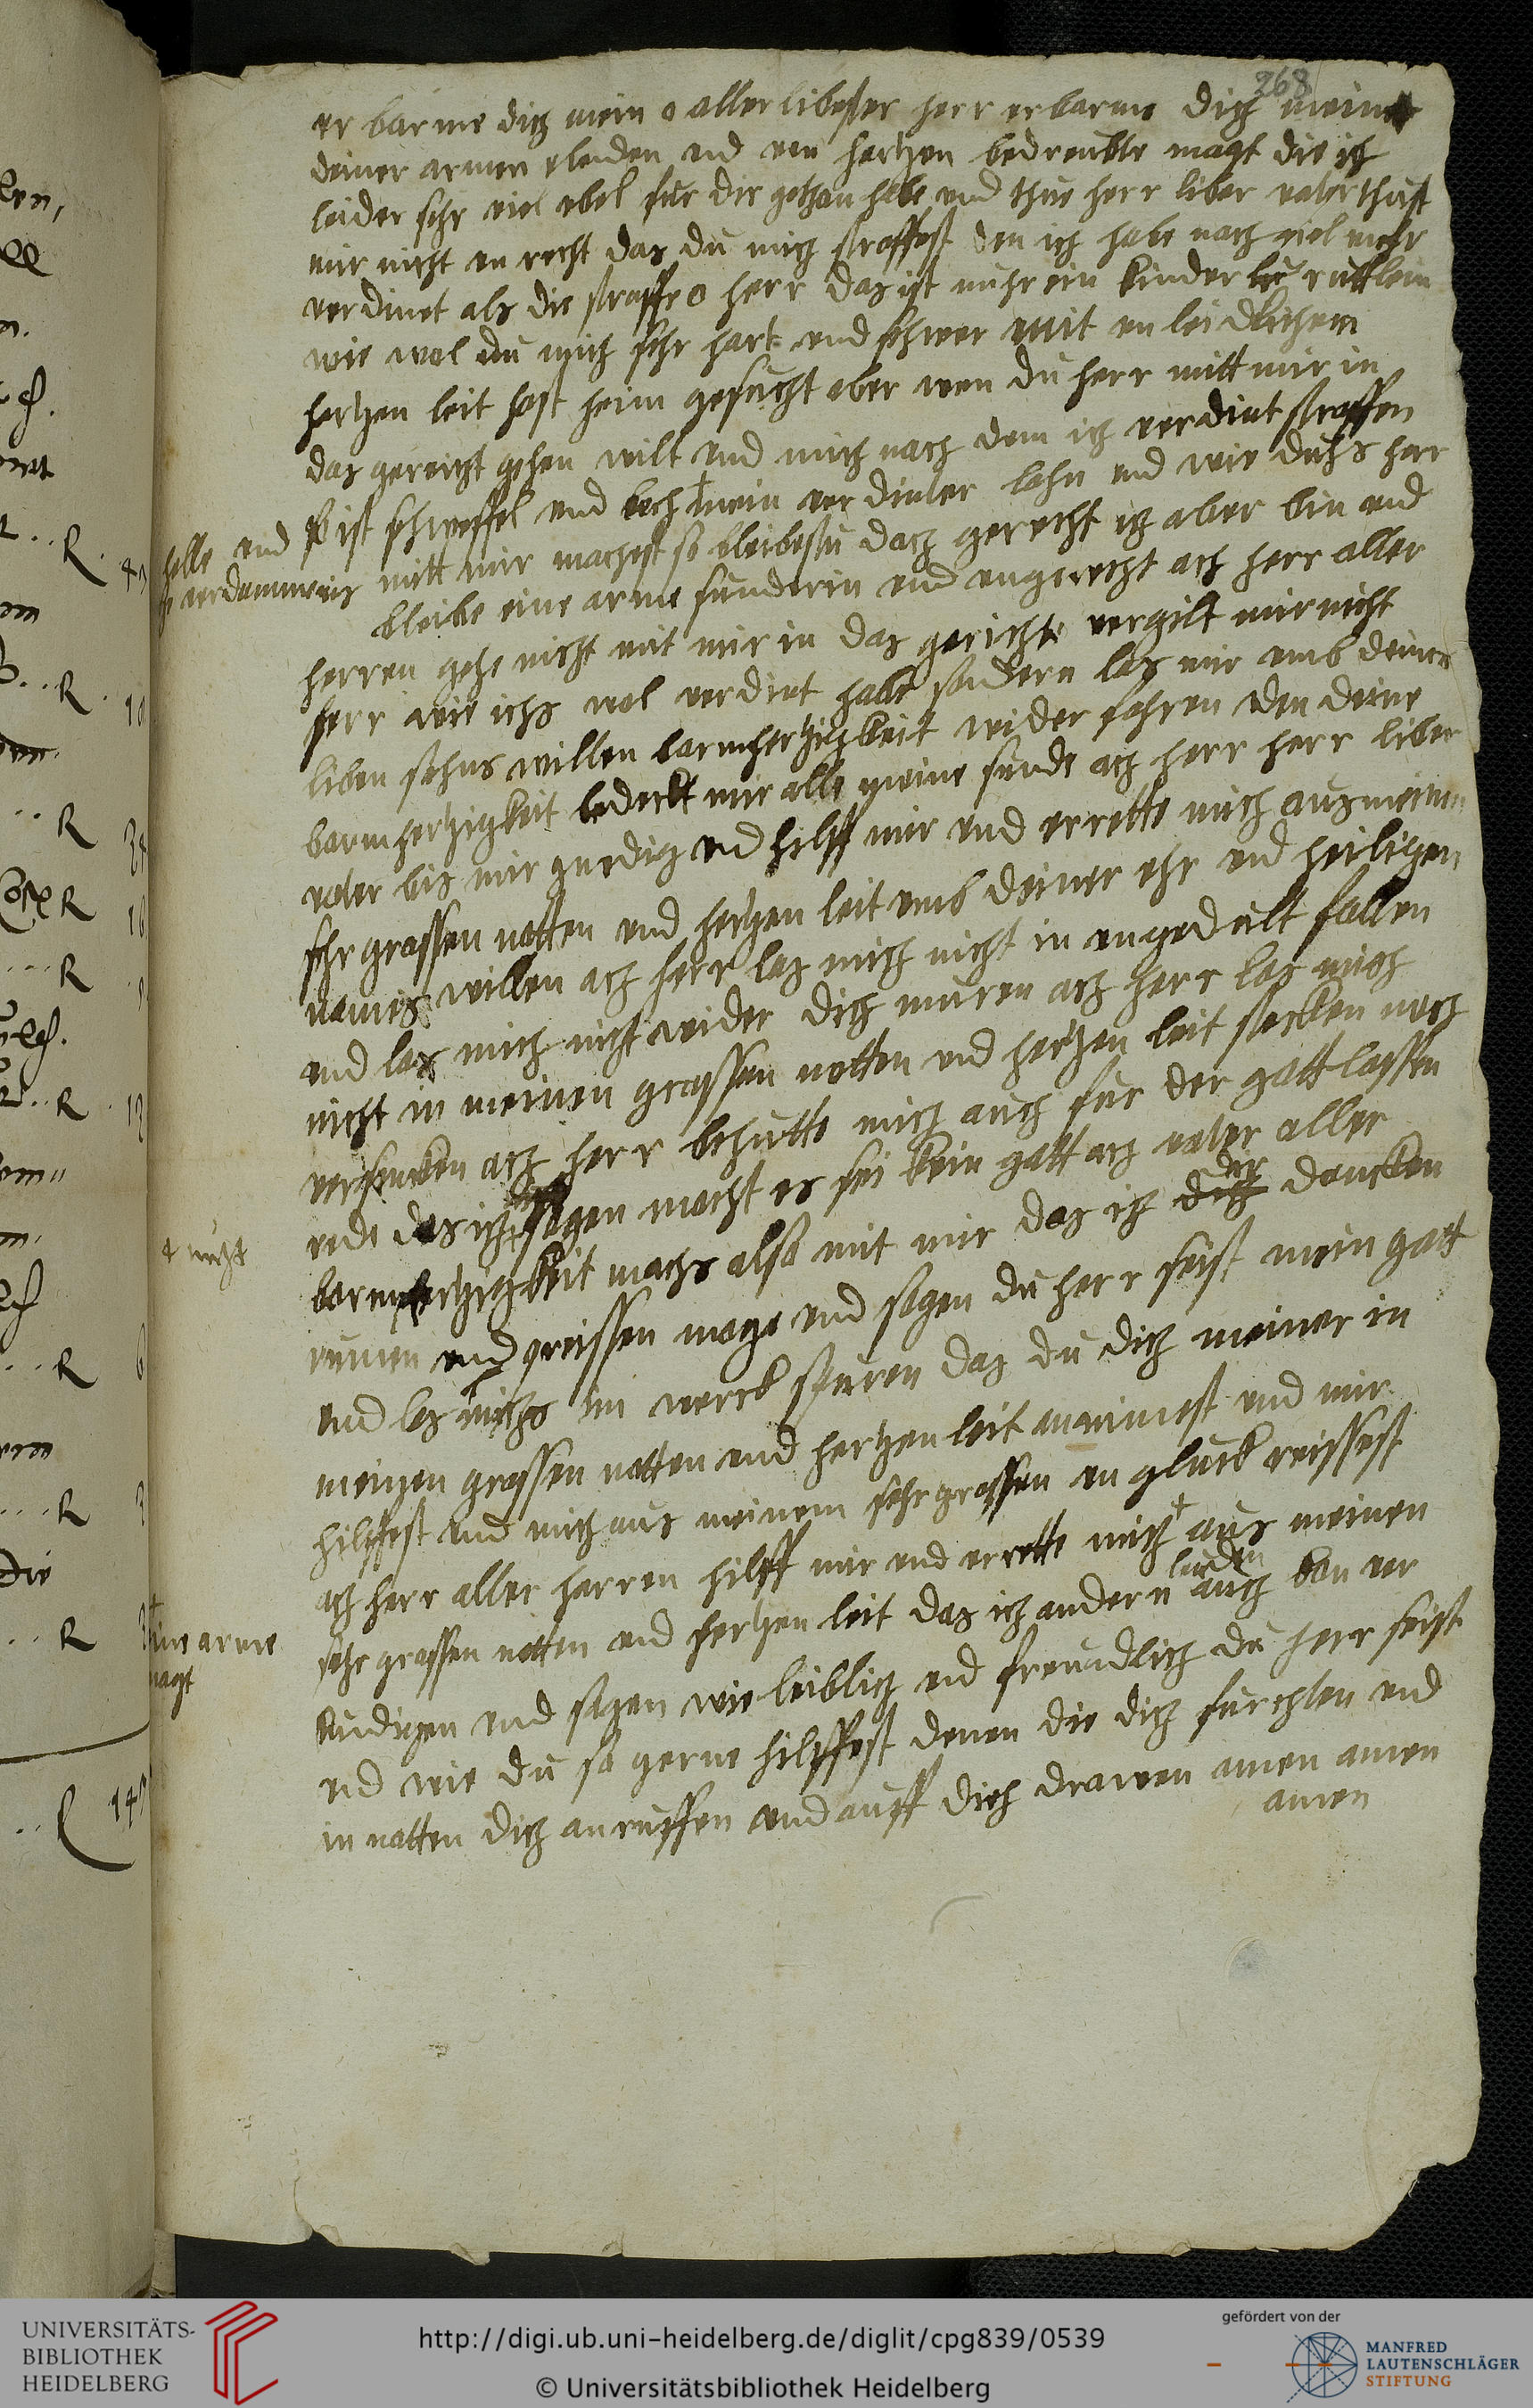 268
er barme dich mein o allerlibester herr erbarme dich meiner
deiner armen elenden vnd von hertzen bedreubte magt die ich
leider sehr viel vbel fur dir gethan habe vnd thue herr liber vater thust
mir nicht vn recht das du mich straffest den ich habe nach viel mehr
verdinet als die straffe o herr das ist nuhr ein kinder ruttlein
wie wol du mich sehr hart vnd schwer mit vn leidlichem
hertzen leit hast heim gesucht aber wen du herr mitt mir in
das gereicht gehen wilt vnd mich nach dem ich verdint straffen
so ist schweffel vnd bech † mein ver dinter lohn vnd wie duhs har
helle vnd
verdammenis
mitt mir machest so bleibestu doch gerecht ich aber bin vnd
bleibe eine arme sunderin vnd vngerecht ach herr aller
herren gehe nicht mit mir in das gericht vergilt mir nicht
herr wie ichs wol verdint habe sondern las mir vmb deines
liben sohns willen barmhertzigkeit wider fahren den deine
barmhertzigkeit bedeckt mir alle meine sunde ach herr herr liber
vater bis mir gnedig vnd hilff mir vnd errette mich aus meinen
sehr grossen notten vnd hertzen leit vmb deiner ehr vnd heiligen
names willen ach herr las mich nicht in vngedult fallen
vnd las mich nicht wider dich muren ach herr las mich
nicht in meinen grossen notten vnd hertzen leit stecken noch
versincken ach herr behutte mich auch fur der gottlossen
rede das ich † sagen mocht es sei kein gott ach vater aller
† nicht
barmhertzigkeit machs also mit mir das ich dir dancken
rumen vnd preissen moge vnd sagen du herr seist mein gott
vnd las michs im werck spuren das du dich meiner in
meinen grossen notten vnd hertzen leit annimest vnd mir
hilffest vnd mich aus meinem sehr grossen vn gluck reissest
ach herr aller herren hilff mir vnd errette mich † aus meinen
† eine arme
magt
sehr grossen notten vnd hertzen leit das ich andern leuden auch kan ver
kudigen vnd sagen wie leiblich vnd freundlich du herr seist
vnd wie du so gerne hilffest denen die dich furchten vnd
in notten dich anruffen vnd auff dich drawen amen amen
amen
UNIVERSITÄTS-
BIBLIOTHEK
HEIDELBERG
http://digi.ub.uni-heidelberg.de/diglit/cpg839/0539
© Universitätsbibliothek Heidelberg
gefördert von der
MANFRED
LAUTENSCHLÄGER
STIFTUNG